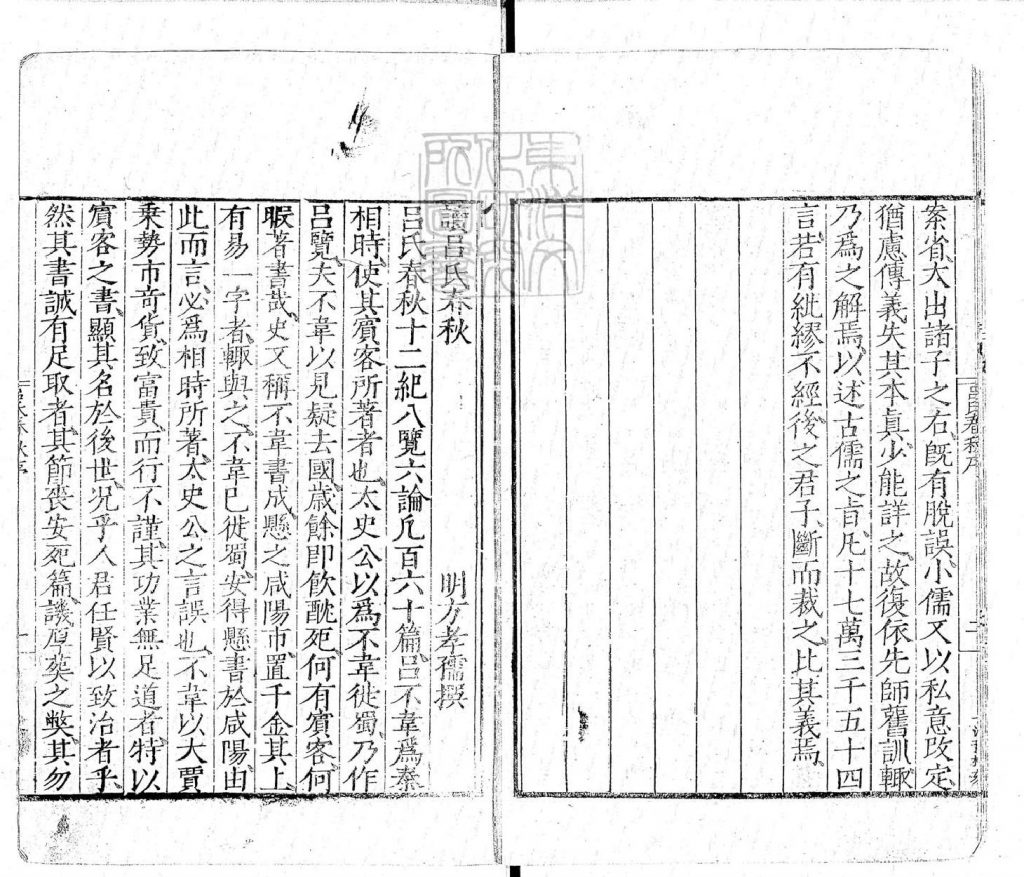 案省大出諸子之右既有脫誤小儒又以私意改定
猶慮傳義失其本真少能詳之故復依先師舊訓輙
乃為之解焉以述古儒之旨凡十七萬三千五十四
言若有紕繆不經後之君子斷而裁之比其義焉
讀呂氏春秋
明方孝孺撰
呂氏春秋十二紀八覽六論凡百六十篇呂不韋為秦
相時使其賓客所著者也太史公以為不韋徙蜀乃作
呂覽夫不韋以見疑去國歲餘即飲酖死何有賓客何
暇著書哉史又稱不韋書成懸之咸陽市置千金其上
有易一字者輙與之不韋已徙蜀安得懸書於咸陽由
此而言必為相時所著太史公之言誤也不韋以大賈
乘勢市奇貨致富貴而行不謹其功業無足道者特以
賓客之書顯其名於後世况乎人君任賢以致治者乎
然其書誠有足取者其節喪安死篇譏厚葬之弊其勿